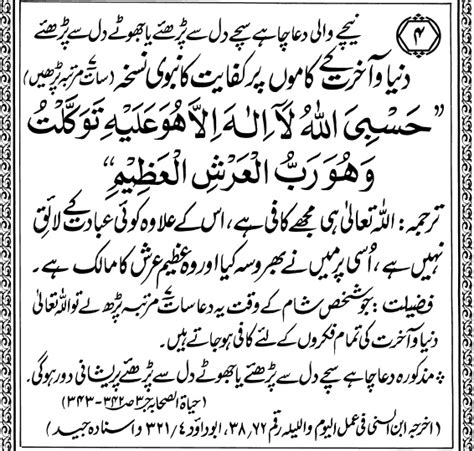 ۴
نیچے والی دعا چاہے سچے دل سے پڑھئے یا جھوٹے دل سے پڑھئے
دنیا و آخرت کے کاموں پر کفایت کا نبوی نسخہ (سات مرتبہ پڑھیں)
”حَسْبِیَ اللّٰهُ لَآ اِلٰـهَ اِلَّا هُوَ عَلَیْهِ تَوَکَّلْتُ
وَهُوَ رَبُّ الْعَرْشِ الْعَظِیْمِ“
ترجمہ: اللہ تعالیٰ ہی مجھے کافی ہے، اس کے علاوہ کوئی عبادت کے لائق
نہیں ہے، اُسی پر میں نے بھروسہ کیا اور وہ عظیم عرش کا مالک ہے۔
فضیلت: جو شخص شام کے وقت یہ دعا سات مرتبہ پڑھ لے تو اللہ تعالیٰ
دنیا و آخرت کی تمام فکروں کے لئے کافی ہو جاتے ہیں۔
مذکورہ دعا چاہے سچے دل سے پڑھئے یا جھوٹے دل سے پڑھئے پریشانی دور ہوگی۔
(حیاۃ الصحابہ ج ۳ ص ۳۴۲-۳۴۳)
(اخرجہ ابن السنی فی عمل الیوم واللیلہ رقم ۳۸،۶۶، ابوداؤد ۳۲۱/۴ واسنادہ جید)